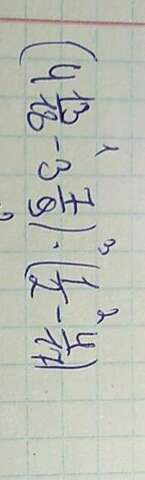 (4 13/18 - 3 7/9) · (1/2 - 4/17)